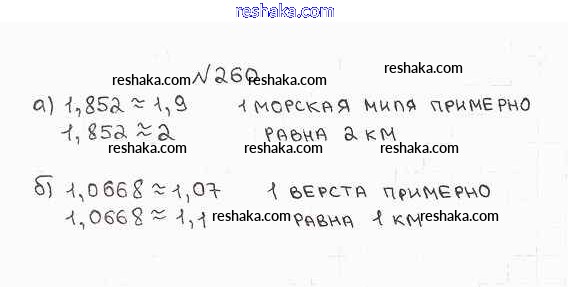 reshaka.com
№260
reshaka.com reshaka.com
а) 1,852 ≈ 1,9 1 морская миля примерно
1,852 ≈ 2 равна 2 км
reshaka.com reshaka.com
б) 1,0668 ≈ 1,07 1 верста примерно
1,0668 ≈ 1,1 reshaka.com равна 1 км reshaka.com